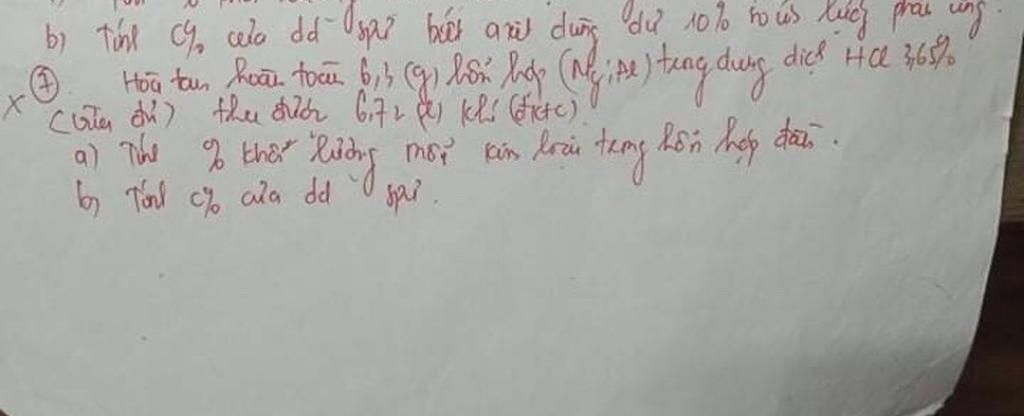 b) Tính C% của dd spư biết axit dùng dư 10% so với lượng phản ứng.
x ⑦ Hoà tan hoàn toàn 6,3 (g) hỗn hợp (Mg; Al) trong dung dịch HCl 3,65%
(vừa đủ) thu được 6,72 (l) khí (đktc).
a) Tính % khối lượng mỗi kim loại trong hỗn hợp đầu.
b) Tính C% của dd spư.